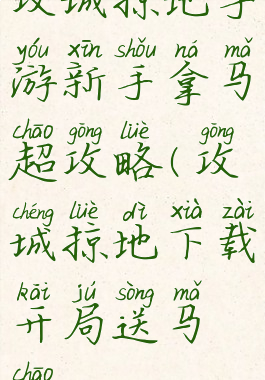 攻城掠地手
yóu xīn shǒu ná mǎ
游新手拿马
chāo gōng lüè gōng
超攻略(攻
chéng lüè dì xià zài
城掠地下载
kāi jú sòng mǎ
开局送马
chāo